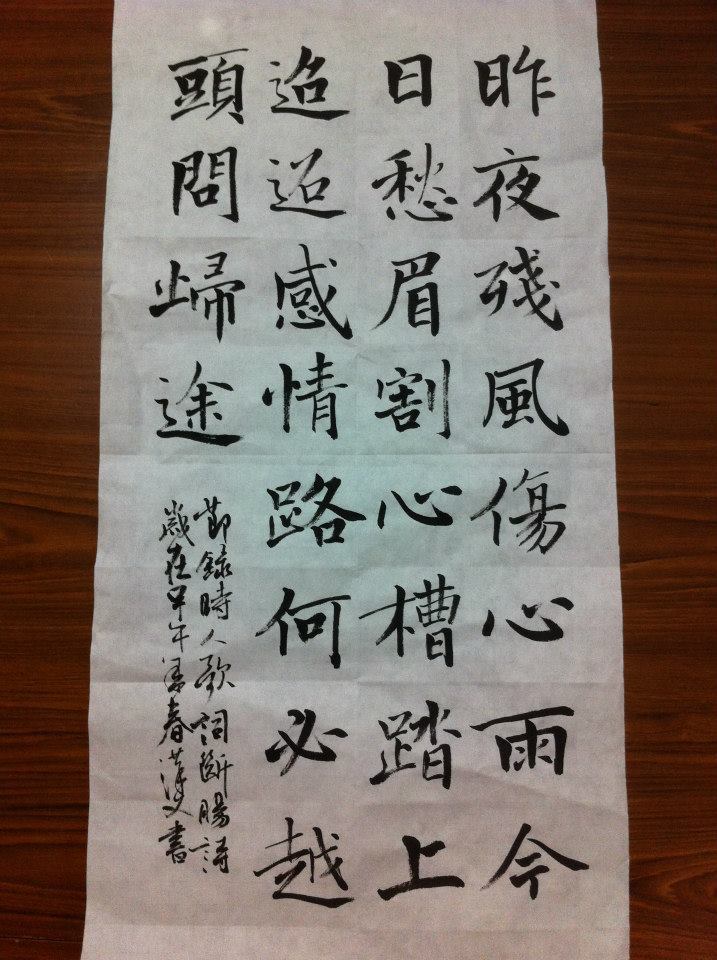 昨夜殘風傷心雨今
日愁眉割心槽踏上
迢迢感情路何必越
頭問歸途
節錄時人歌詞斷腸詩
歲在甲午春漢文書